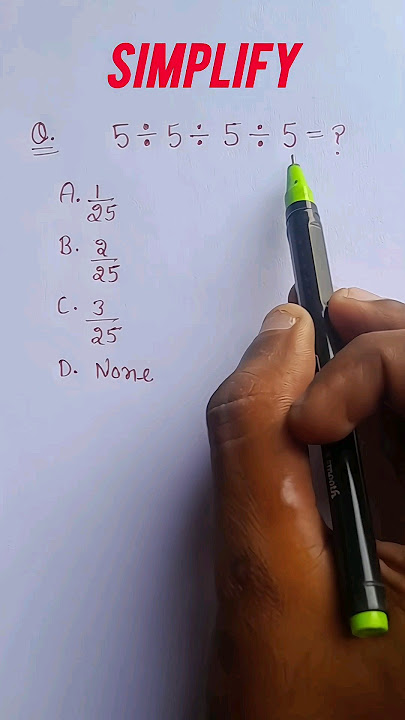 SIMPLIFY
Q. 5 ÷ 5 ÷ 5 ÷ 5 = ?
A. 1/25
B. 2/25
C. 3/25
D. None
smooth